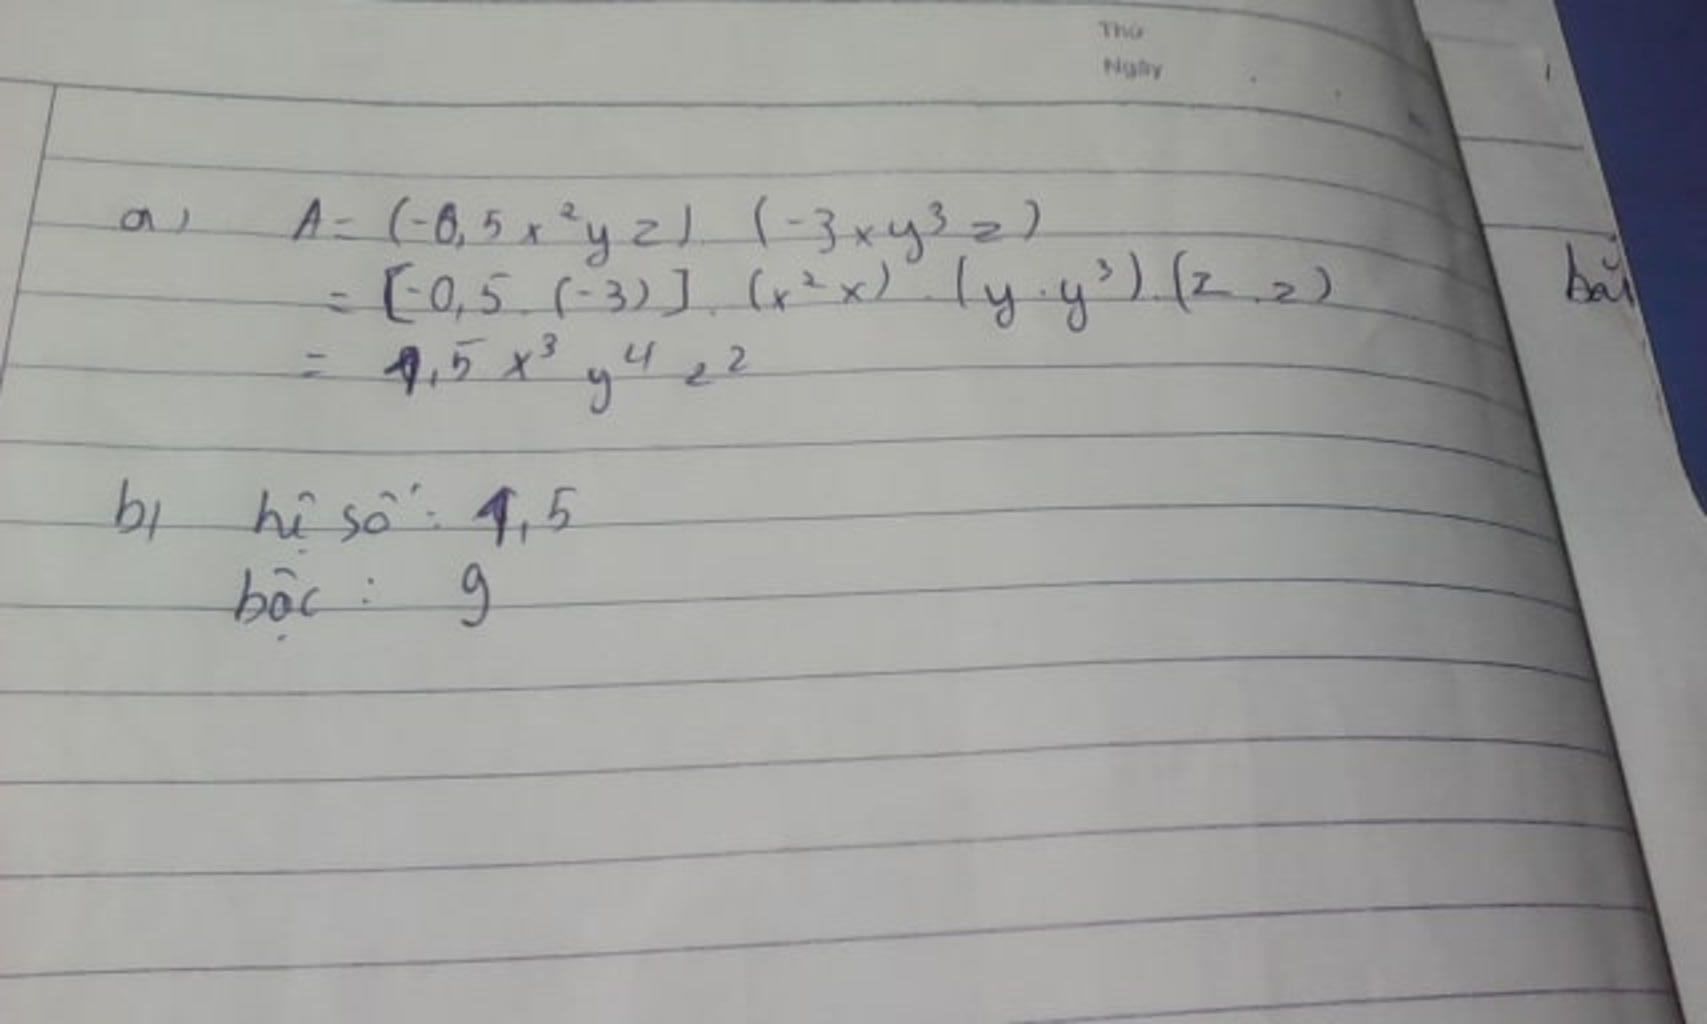 Thứ
Ngày
a) A = (-0,5x²yz). (-3xy³z)
= [-0,5.(-3)].(x²x).(y.y³).(z.z)
= 1,5x³y⁴z²
b) hệ số: 1,5
bậc: 9